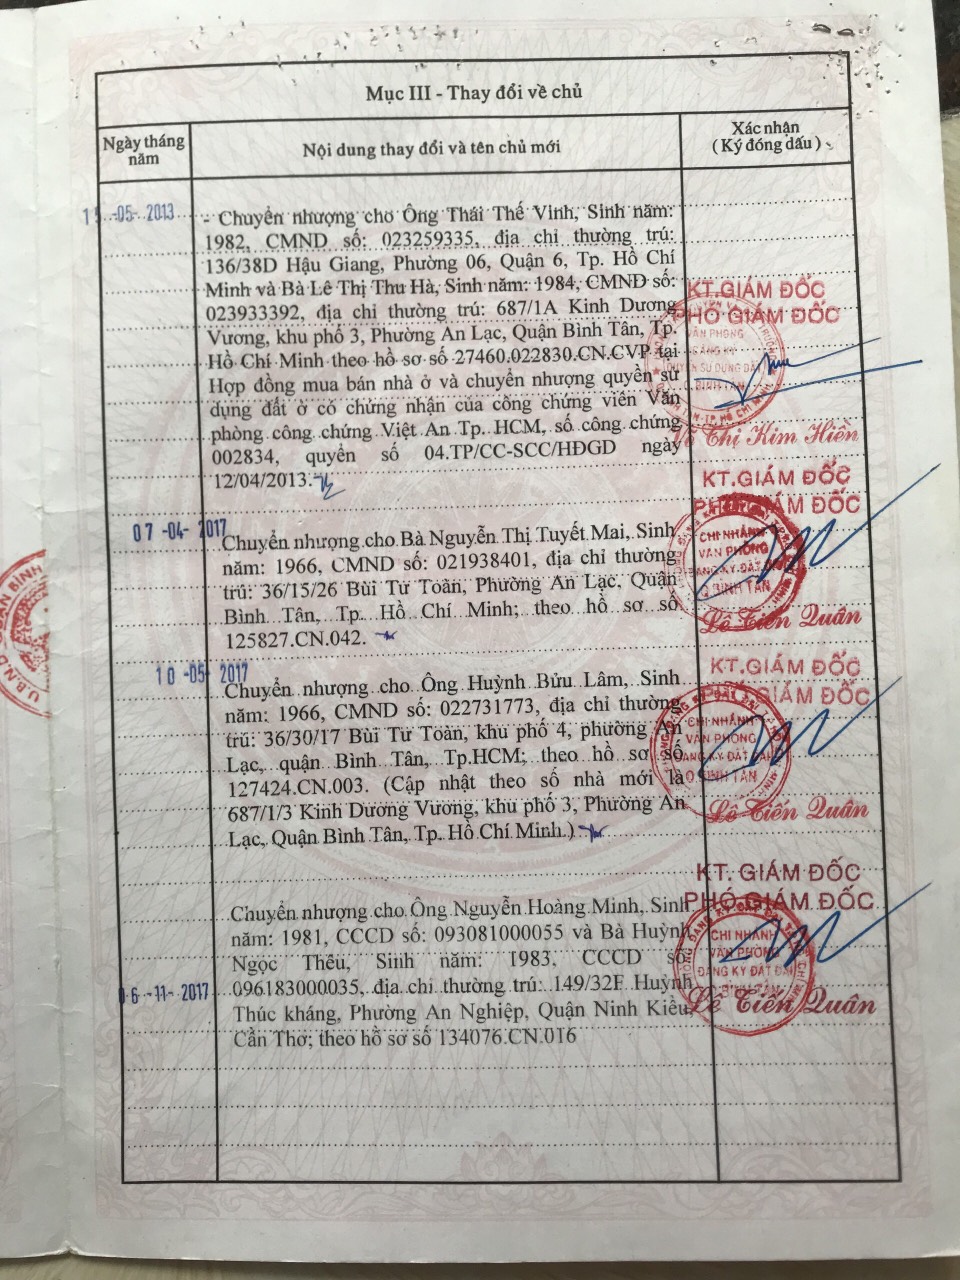 Mục III - Thay đổi về chủ
Ngày tháng năm
Nội dung thay đổi và tên chủ mới
Xác nhận
( Ký đóng dấu )
15-05-2013
- Chuyển nhượng cho Ông Thái Thế Vinh, Sinh năm:
1982, CMND số: 023259335, địa chỉ thường trú:
136/38D Hậu Giang, Phường 06, Quận 6, Tp. Hồ Chí
Minh và Bà Lê Thị Thu Hà, Sinh năm: 1984, CMND số:
023933392, địa chỉ thường trú: 687/1A Kinh Dương
Vương, khu phố 3, Phường An Lạc, Quận Bình Tân, Tp.
Hồ Chí Minh theo hồ sơ số 27460.022830.CN.CVP tại
Hợp đồng mua bán nhà ở và chuyển nhượng quyền sử
dụng đất ở có chứng nhận của công chứng viên Văn
phòng công chứng Việt An Tp. HCM, số công chứng
002834, quyển số 04.TP/CC-SCC/HĐGD ngày
12/04/2013.
KT.GIÁM ĐỐC
PHÓ GIÁM ĐỐC
VĂN PHÒNG
ĐĂNG KÝ
QUYỀN SỬ DỤNG ĐẤT
BÌNH TÂN
Võ Thị Kim Hiền
07-04-2017
Chuyển nhượng cho Bà Nguyễn Thị Tuyết Mai, Sinh
năm: 1966, CMND số: 021938401, địa chỉ thường
trú: 36/15/26 Bùi Tư Toàn, Phường An Lạc, Quận
Bình Tân, Tp. Hồ Chí Minh; theo hồ sơ số
125827.CN.042.
KT.GIÁM ĐỐC
PHÓ GIÁM ĐỐC
CHI NHÁNH
VĂN PHÒNG
ĐĂNG KÝ ĐẤT ĐAI
Q BÌNH TÂN
Lê Tiến Quân
10-05-2017
Chuyển nhượng cho Ông Huỳnh Bửu Lâm, Sinh
năm: 1966, CMND số: 022731773, địa chỉ thường
trú: 36/30/17 Bùi Tư Toàn, khu phố 4, phường An
Lạc, quận Bình Tân, Tp.HCM; theo hồ sơ số
127424.CN.003. (Cập nhật theo số nhà mới là
687/1/3 Kinh Dương Vương, khu phố 3, Phường An
Lạc, Quận Bình Tân, Tp. Hồ Chí Minh.)
KT.GIÁM ĐỐC
PHÓ GIÁM ĐỐC
CHI NHÁNH
VĂN PHÒNG
ĐĂNG KÝ ĐẤT ĐAI
Q BÌNH TÂN
Lê Tiến Quân
06-11-2017
Chuyển nhượng cho Ông Nguyễn Hoàng Minh, Sinh
năm: 1981, CCCD số: 093081000055 và Bà Huỳnh
Ngọc Thêu, Sinh năm: 1983, CCCD số
096183000035, địa chỉ thường trú: 149/32F Huỳnh
Thúc kháng, Phường An Nghiệp, Quận Ninh Kiều,
Cần Thơ; theo hồ sơ số 134076.CN.016
KT. GIÁM ĐỐC
PHÓ GIÁM ĐỐC
CHI NHÁNH
VĂN PHÒNG
ĐĂNG KÝ ĐẤT ĐAI
Q BÌNH TÂN
Lê Tiến Quân